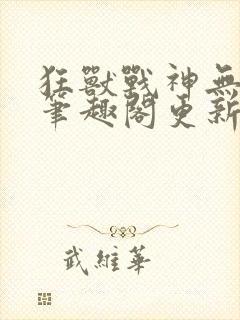 狂獸戰神無
筆趣閣更新
武維華